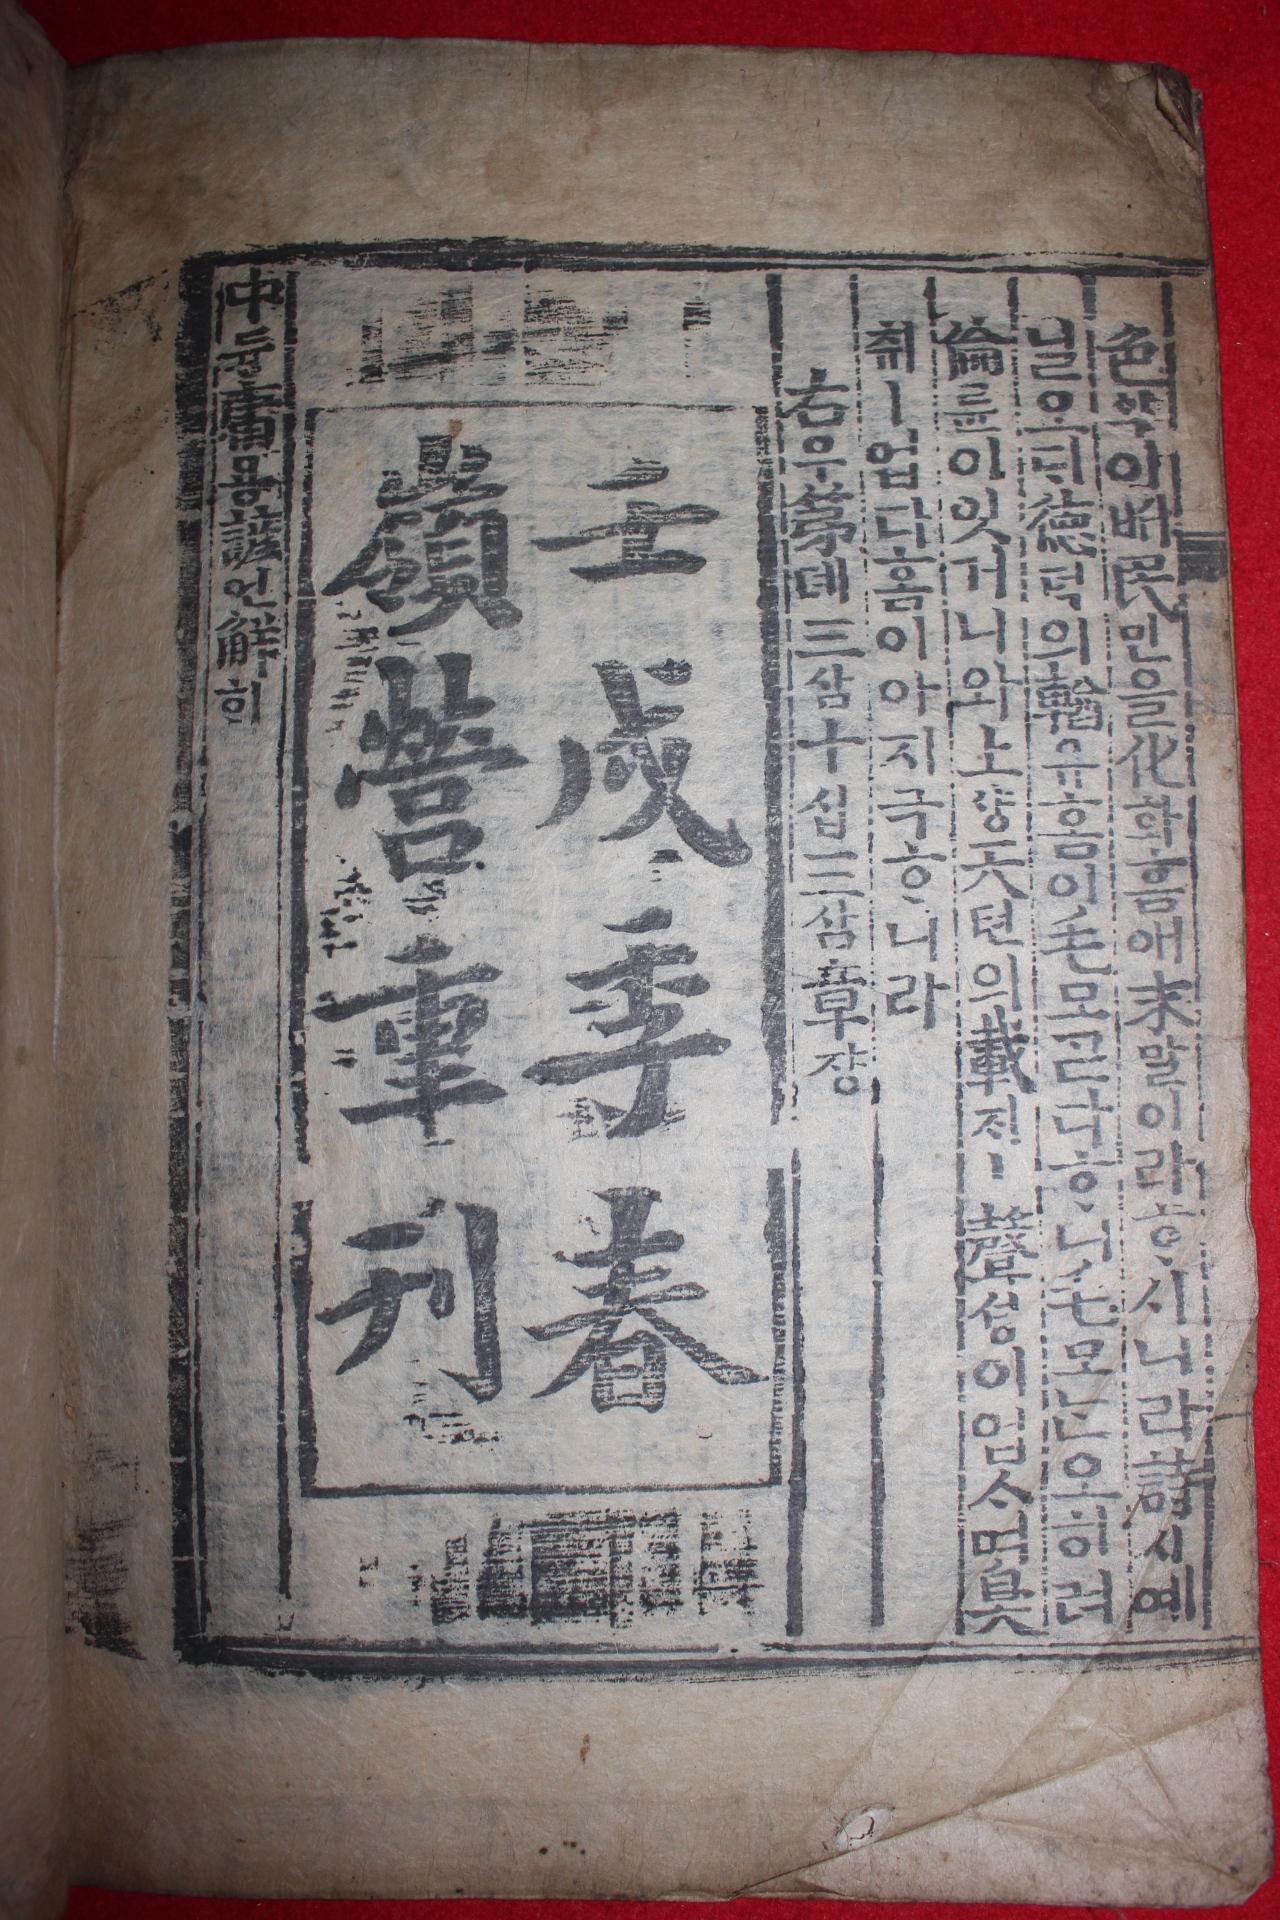 色ᄉᆡᆨ이 ᄡᅥ 民민을 化화홈애 末말이라 ᄒᆞ시니라 詩시예
닐오ᄃᆡ 德덕의 輶유홈이 毛모 ᄀᆞᆮ다 ᄒᆞ니 毛모ᄂᆞᆫ 오히려
倫륜이 잇거니와 上샹天텬의 載ᄌᆡㅣ 聲셩이 업스며 臭
취ㅣ 업다 홈이아 지극ᄒᆞ니라
右우ᄂᆞᆫ 第뎨三삼十십三삼章쟝
壬戌季春
嶺營重刊
中듕庸용諺언解ᄒᆡ